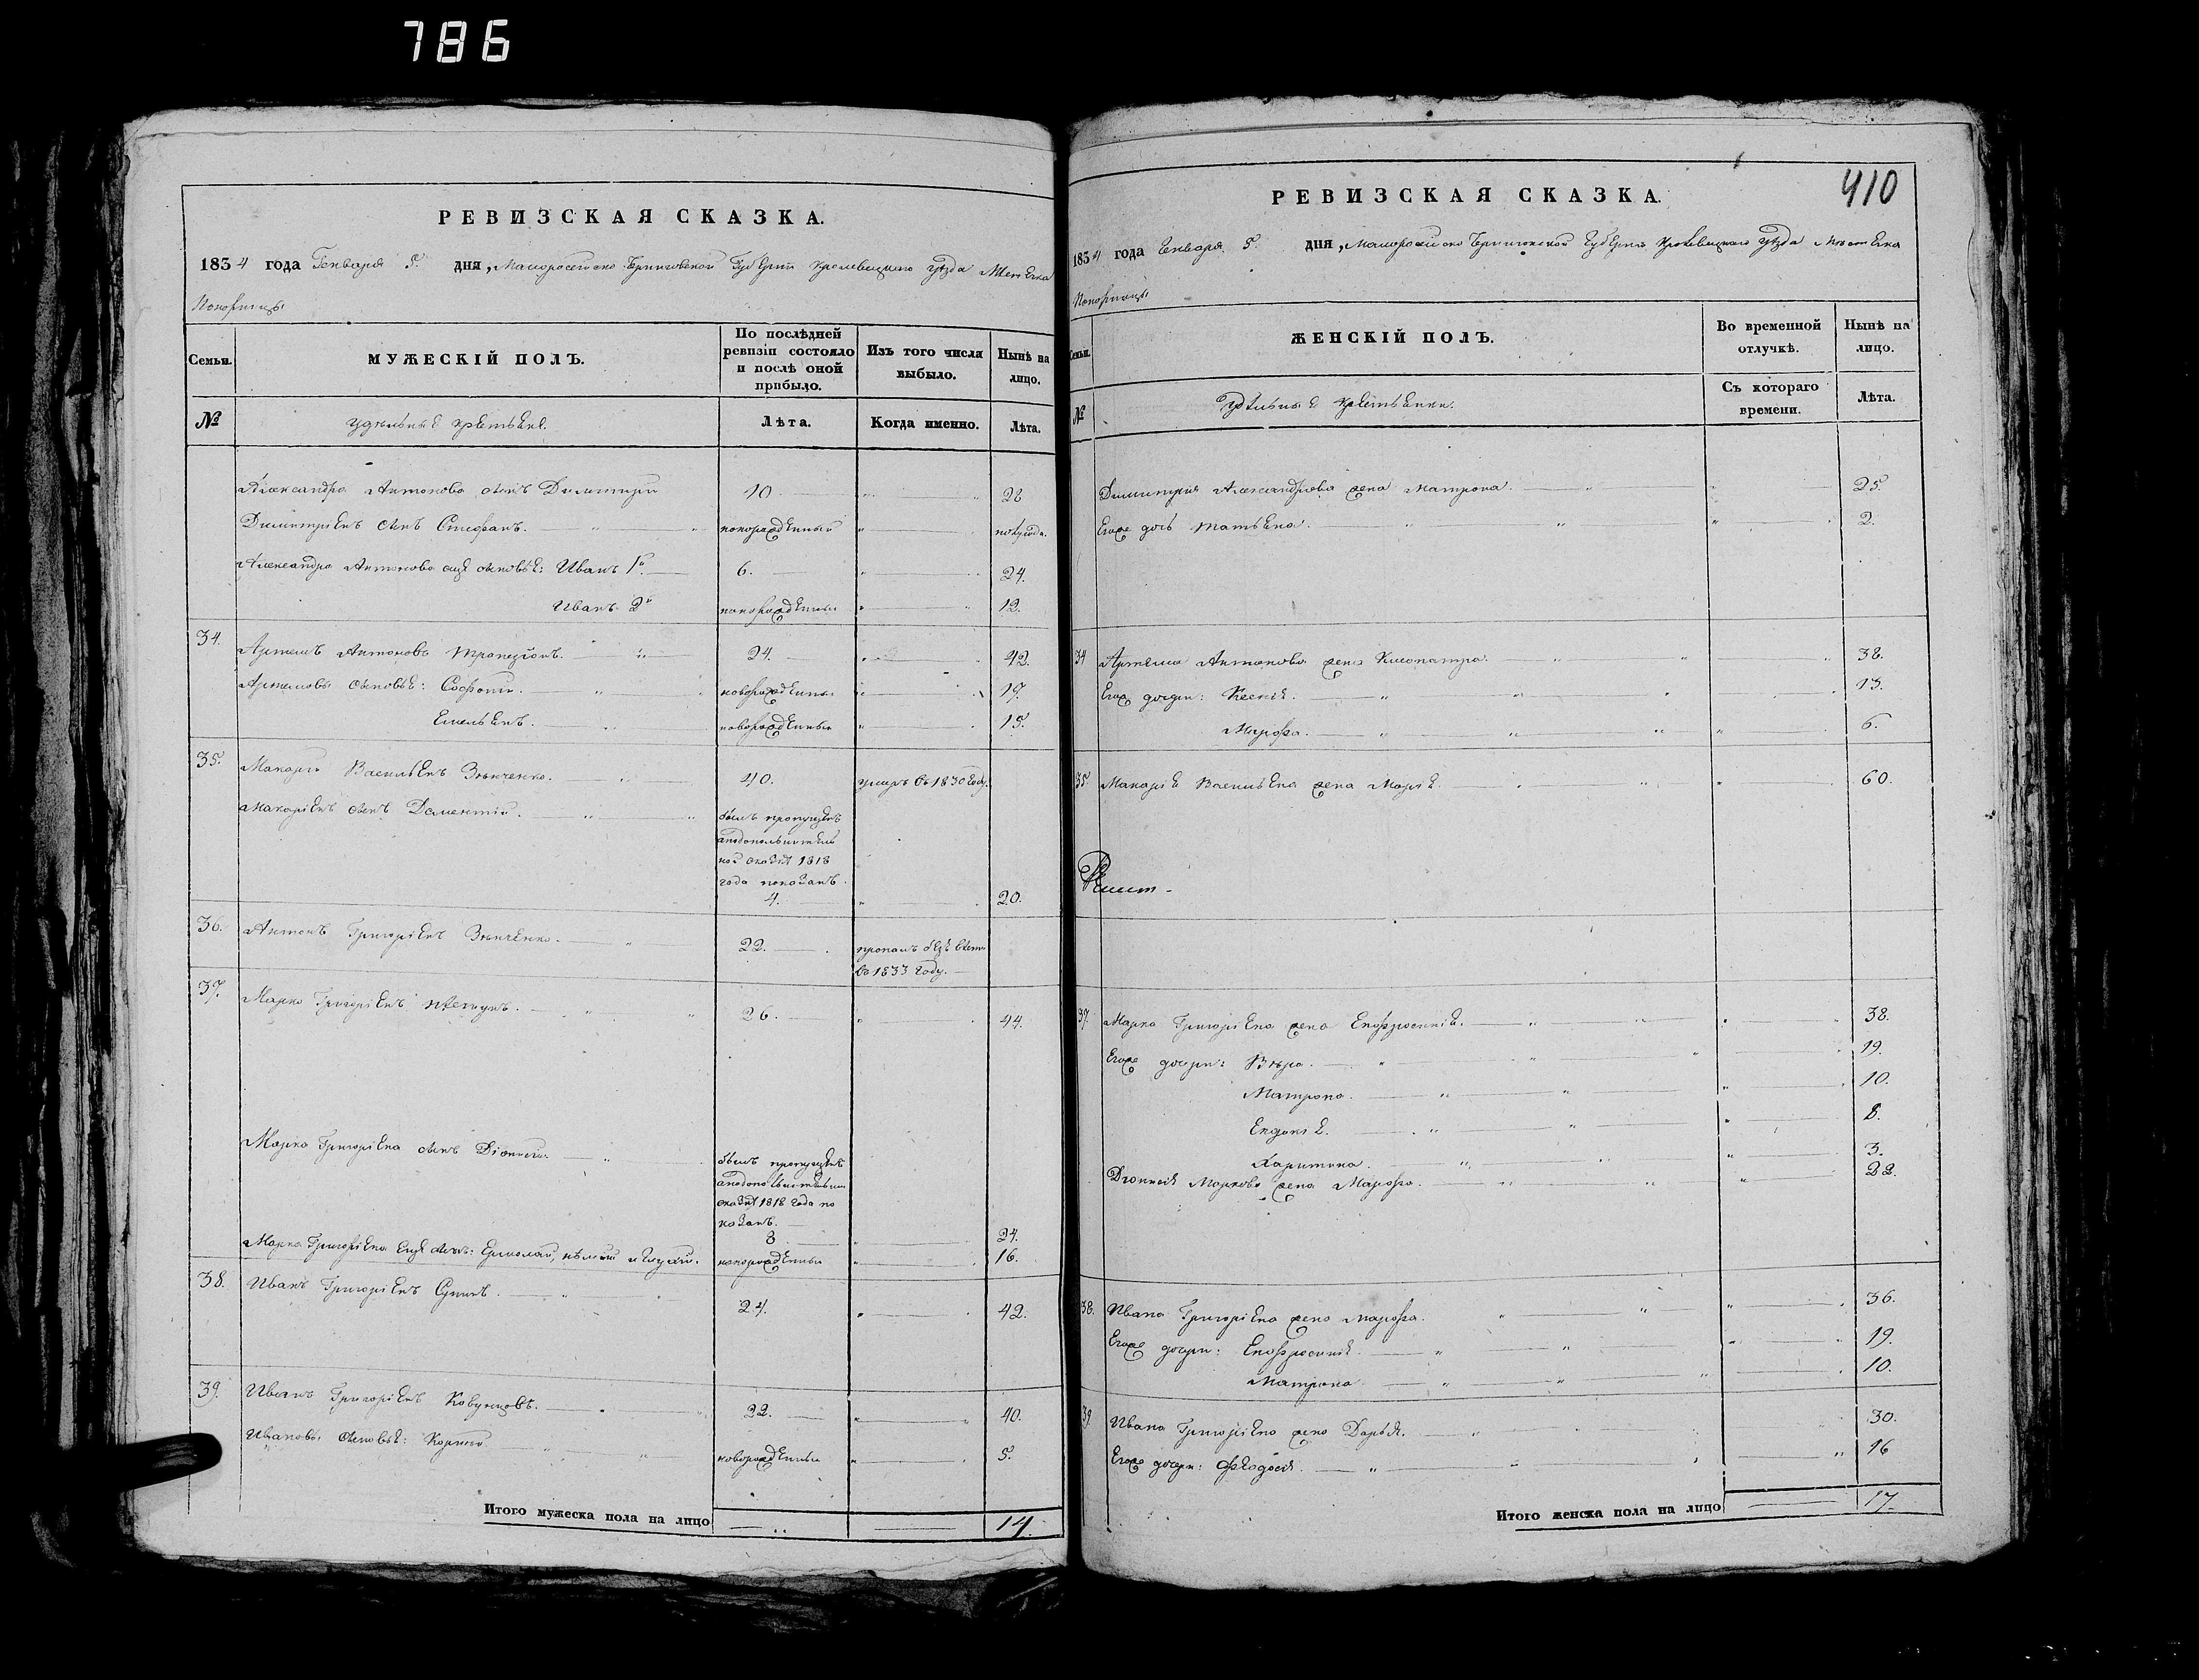 786
РЕВИЗСКАЯ СКАЗКА.
1834 года Генваря 5. дня, Малоросейско Черниговской Губернии Кролевецкого уезда Местечка
Понорницы
Семьи.
МУЖЕСКІЙ ПОЛЪ.
По послѣдней ревизіи состояло и послѣ оной прибыло.
Изъ того числа выбыло.
Нынѣ на лицо.
№
удельные крестьяне.
Лѣта.
Когда именно.
Лѣта.
Александра Антонова сынъ Димитрий 10 28
Димитріевъ сынъ Стефанъ. новорожденный полугода.
Александра Антонова еще сыновья: Иванъ 1й 6. 24.
Иванъ 2й новорожденный 12.
34. Артемъ Антоновъ 24. 42.
Артемовы сыновья: Софоній. новорожденный 17.
Емельянъ. новорожденный 15.
35. Макарій Васильевъ Зѣнченко. 40. умеръ въ 1830 году.
Макаріевъ сынъ Дементій. былъ пропущенъ
а по дополнительной сказкѣ 1818
года показанъ
4. 20.
36. Антонъ Григоріевъ Зѣнченко. 22. пропалъ безъ вести
въ 1833 году.
37. Марко Григоріевъ 26. 44.
Марка Григоріева сынъ Діонисій былъ пропущенъ
а по дополнительной
сказкѣ 1818 года показанъ.
8 24.
Марка Григоріева еще сынъ: Ермолай, нѣмой и глухой. новорожденный 16.
38. Иванъ Григоріевъ 24. 42.
39. Иванъ Григоріевъ Ковунцовъ. 22. 40.
Ивановы сыновья: Корній новорожденный 5.
Итого мужеска пола на лицо 14.
410
РЕВИЗСКАЯ СКАЗКА.
1834 года Генваря 5. дня, Малоросейско Черниговской Губерніи Кролевецкого уѣзда Местечка
Понорницы
Семьи.
ЖЕНСКІЙ ПОЛЪ.
Во временной отлучкѣ.
Нынѣ на лицо.
№
Удельные крестьянки.
Съ котораго времени.
Лѣта.
Димитрія Александрова жена Матрона. 25.
Егоже дочь Татьяна. 2.
34 Артема Антонова жена Клеопатра. 38.
Егоже дочери: Ксенія. 13.
Марфа. 6.
35. Макарія Васильева жена Марія. 60.
37. Марка Григоріева жена Евфросинія. 38.
Егоже дочери: Вѣра. 19.
Матрона. 10.
Евдокія. 8.
Харитина. 3.
Діонисія Маркова жена Марфа. 22.
38. Ивана Григоріева жена Марфа. 36.
Егоже дочери: Евфросинія. 19.
Матрона 10.
39. Ивана Григоріева жена Дарья. 30.
Егоже дочери: Феодосія. 16
Итого женска пола на лицо 17.